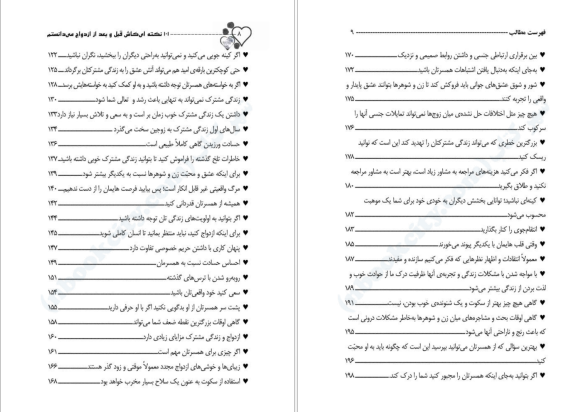 ۸ ۱۰۱ نکته ای کاش قبل و بعد از ازدواج می‌دانستم
♥ اگر کینه جویی می‌کنید و نمی‌توانید به‌راحتی دیگران را ببخشید، نگران نباشید ۱۲۲
♥ حتی کوچکترین بارقه‌ی امید هم می‌تواند آتش عشق را به زندگی مشترکتان برگرداند ۱۲۵
♥ اگر به خواسته‌های همسرتان توجه داشته باشید و به او کمک کنید به خواسته‌هایش برسد ۱۲۸
♥ زندگی مشترک نمی‌تواند به تنهایی باعث رشد و تعالی شما شود ۱۳۰
♥ داشتن یک زندگی مشترک خوب زمان بر است و به سعی و تلاش بسیار نیاز دارد ۱۳۳
♥ سال‌های اول زندگی مشترک به زوجین سخت می‌گذرد ۱۳۴
♥ حسادت ورزیدن گاهی کاملاً طبیعی است ۱۳۶
♥ خاطرات تلخ گذشته را فراموش کنید تا بتوانید زندگی مشترک خوبی داشته باشید ۱۳۷
♥ برای اینکه عشق و محبّت زن و شوهرها نسبت به یکدیگر بیشتر شود ۱۳۹
♥ مرگ واقعیتی غیر قابل انکار است؛ پس بیایید فرصت هایمان را از دست ندهیم ۱۴۰
♥ همیشه از همسرتان قدردانی کنید ۱۴۲
♥ اگر بتوانید به اولویت‌های زندگی تان توجه داشته باشید ۱۴۴
♥ برای اینکه ازدواج کنید، نباید منتظر بمانید تا انسان کاملی شوید ۱۴۵
♥ پنهان کاری با داشتن حریم خصوصی تفاوت دارد ۱۴۷
♥ احساس حسادت نسبت به همسرمان ۱۴۹
♥ روبه‌رو شدن با ترس‌های گذشته ۱۵۱
♥ سعی کنید خود واقعی‌تان باشید ۱۵۴
♥ پشت سر همسرتان از او بدگویی نکنید اگر با او حرفی دارید ۱۵۵
♥ گاهی اوقات بزرگترین نقطه ضعف شما می‌تواند ۱۵۸
♥ ازدواج و زندگی مشترک مزایای زیادی دارد ۱۶۰
♥ اگر چیزی برای همسرتان مهم است ۱۶۱
♥ زیبای‌ها و خوشی‌های ازدواج مجدد معمولاً موقتی و زود گذر هستند ۱۶۶
♥ استفاده از سکوت به عنون یک سلاح بسیار مخرب خواهد بود ۱۶۸
فهرست مطالب ۹
♥ بین برقراری ارتباطی جنسی و داشتن روابط صمیمی و نزدیک ۱۷۰
♥ به‌جای اینکه به‌دنبال یافتن اشتباهات همسرتان باشید ۱۷۳
♥ شور و شوق عشق‌های جوانی باید فروکش کند تا زن و شوهرها بتوانند عشق پایدار و
واقعی را تجربه کنند ۱۷۵
♥ هیچ چیز مثل اختلافات حل نشده‌ی میان زوج‌ها نمی‌تواند تمایلات جنسی آنها را
سرکوب کند ۱۷۶
♥ بزرگترین خطری که می‌تواند زندگی مشترکتان را تهدید کند این است که نتوانید
ریسک کنید ۱۷۸
♥ اگر فکر می‌کنید هزینه‌های مراجعه به مشاور زیاد است، بهتر است به مشاور مراجعه
نکنید و طلاق بگیرید ۱۸۰
♥ کینه‌ای نباشید؛ توانایی بخشش دیگران به خودی خود برای شما یک موهبت
محسوب می‌شود ۱۸۲
♥ انتقام‌جوی را کنار بگذارید ۱۸۳
♥ وقتی قلب هایمان با یکدیگر پیوند می‌خورند ۱۸۵
♥ معمولاً انتقادات و اظهار نظرهایی که فکر می‌کنیم سازنده و مفیدند ۱۸۷
♥ با مواجه شدن با مشکلات زندگی و تجربه‌ی آنها ظرفیت درک ما از حوادث خوب و
لذت بردن از زندگی بیشتر می‌شود ۱۸۹
♥ گاهی هیچ چیز بهتر از سکوت و یک شنونده‌ی خوب بودن نیست ۱۹۱
♥ گاهی اوقات بحث و مشاجره‌های میان زن و شوهرها به‌خاطر مشکلات درونی است
که باعث رنج و ناراحتی آنها می‌شود ۱۹۵
♥ بهترین سؤالی که از همسرتان می‌توانید بپرسید این است که چگونه باید به او محبّت
کنید ۱۹۶
♥ اگر بتوانید به‌جای اینکه همسرتان را مجبور کنید شما را درک کند ۱۹۸